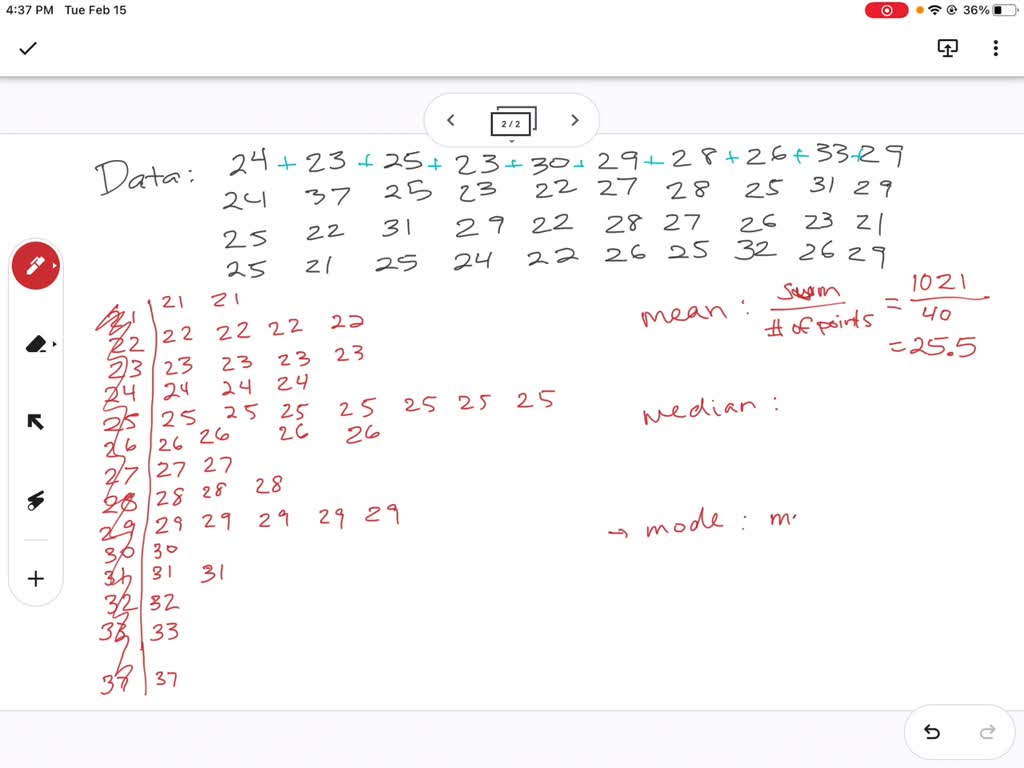 4:37 PM Tue Feb 15
36%
2 / 2
Data: 24 + 23 + 25 + 23 + 30 + 29 + 28 + 26 + 33 + 29
24 37 25 23 22 27 28 25 31 29
25 22 31 29 22 28 27 26 23 21
25 21 25 24 22 26 25 32 26 29
21 21 21
22 22 22 22 22
23 23 23 23 23
24 24 24 24
25 25 25 25 25 25 25 25
26 26 26 26 26
27 27 27
28 28 28 28
29 29 29 29 29 29
30 30
31 31 31
32 32
33 33
37 37
mean : sum / # of points = 1021 / 40
= 25.5
median :
→ mode : m